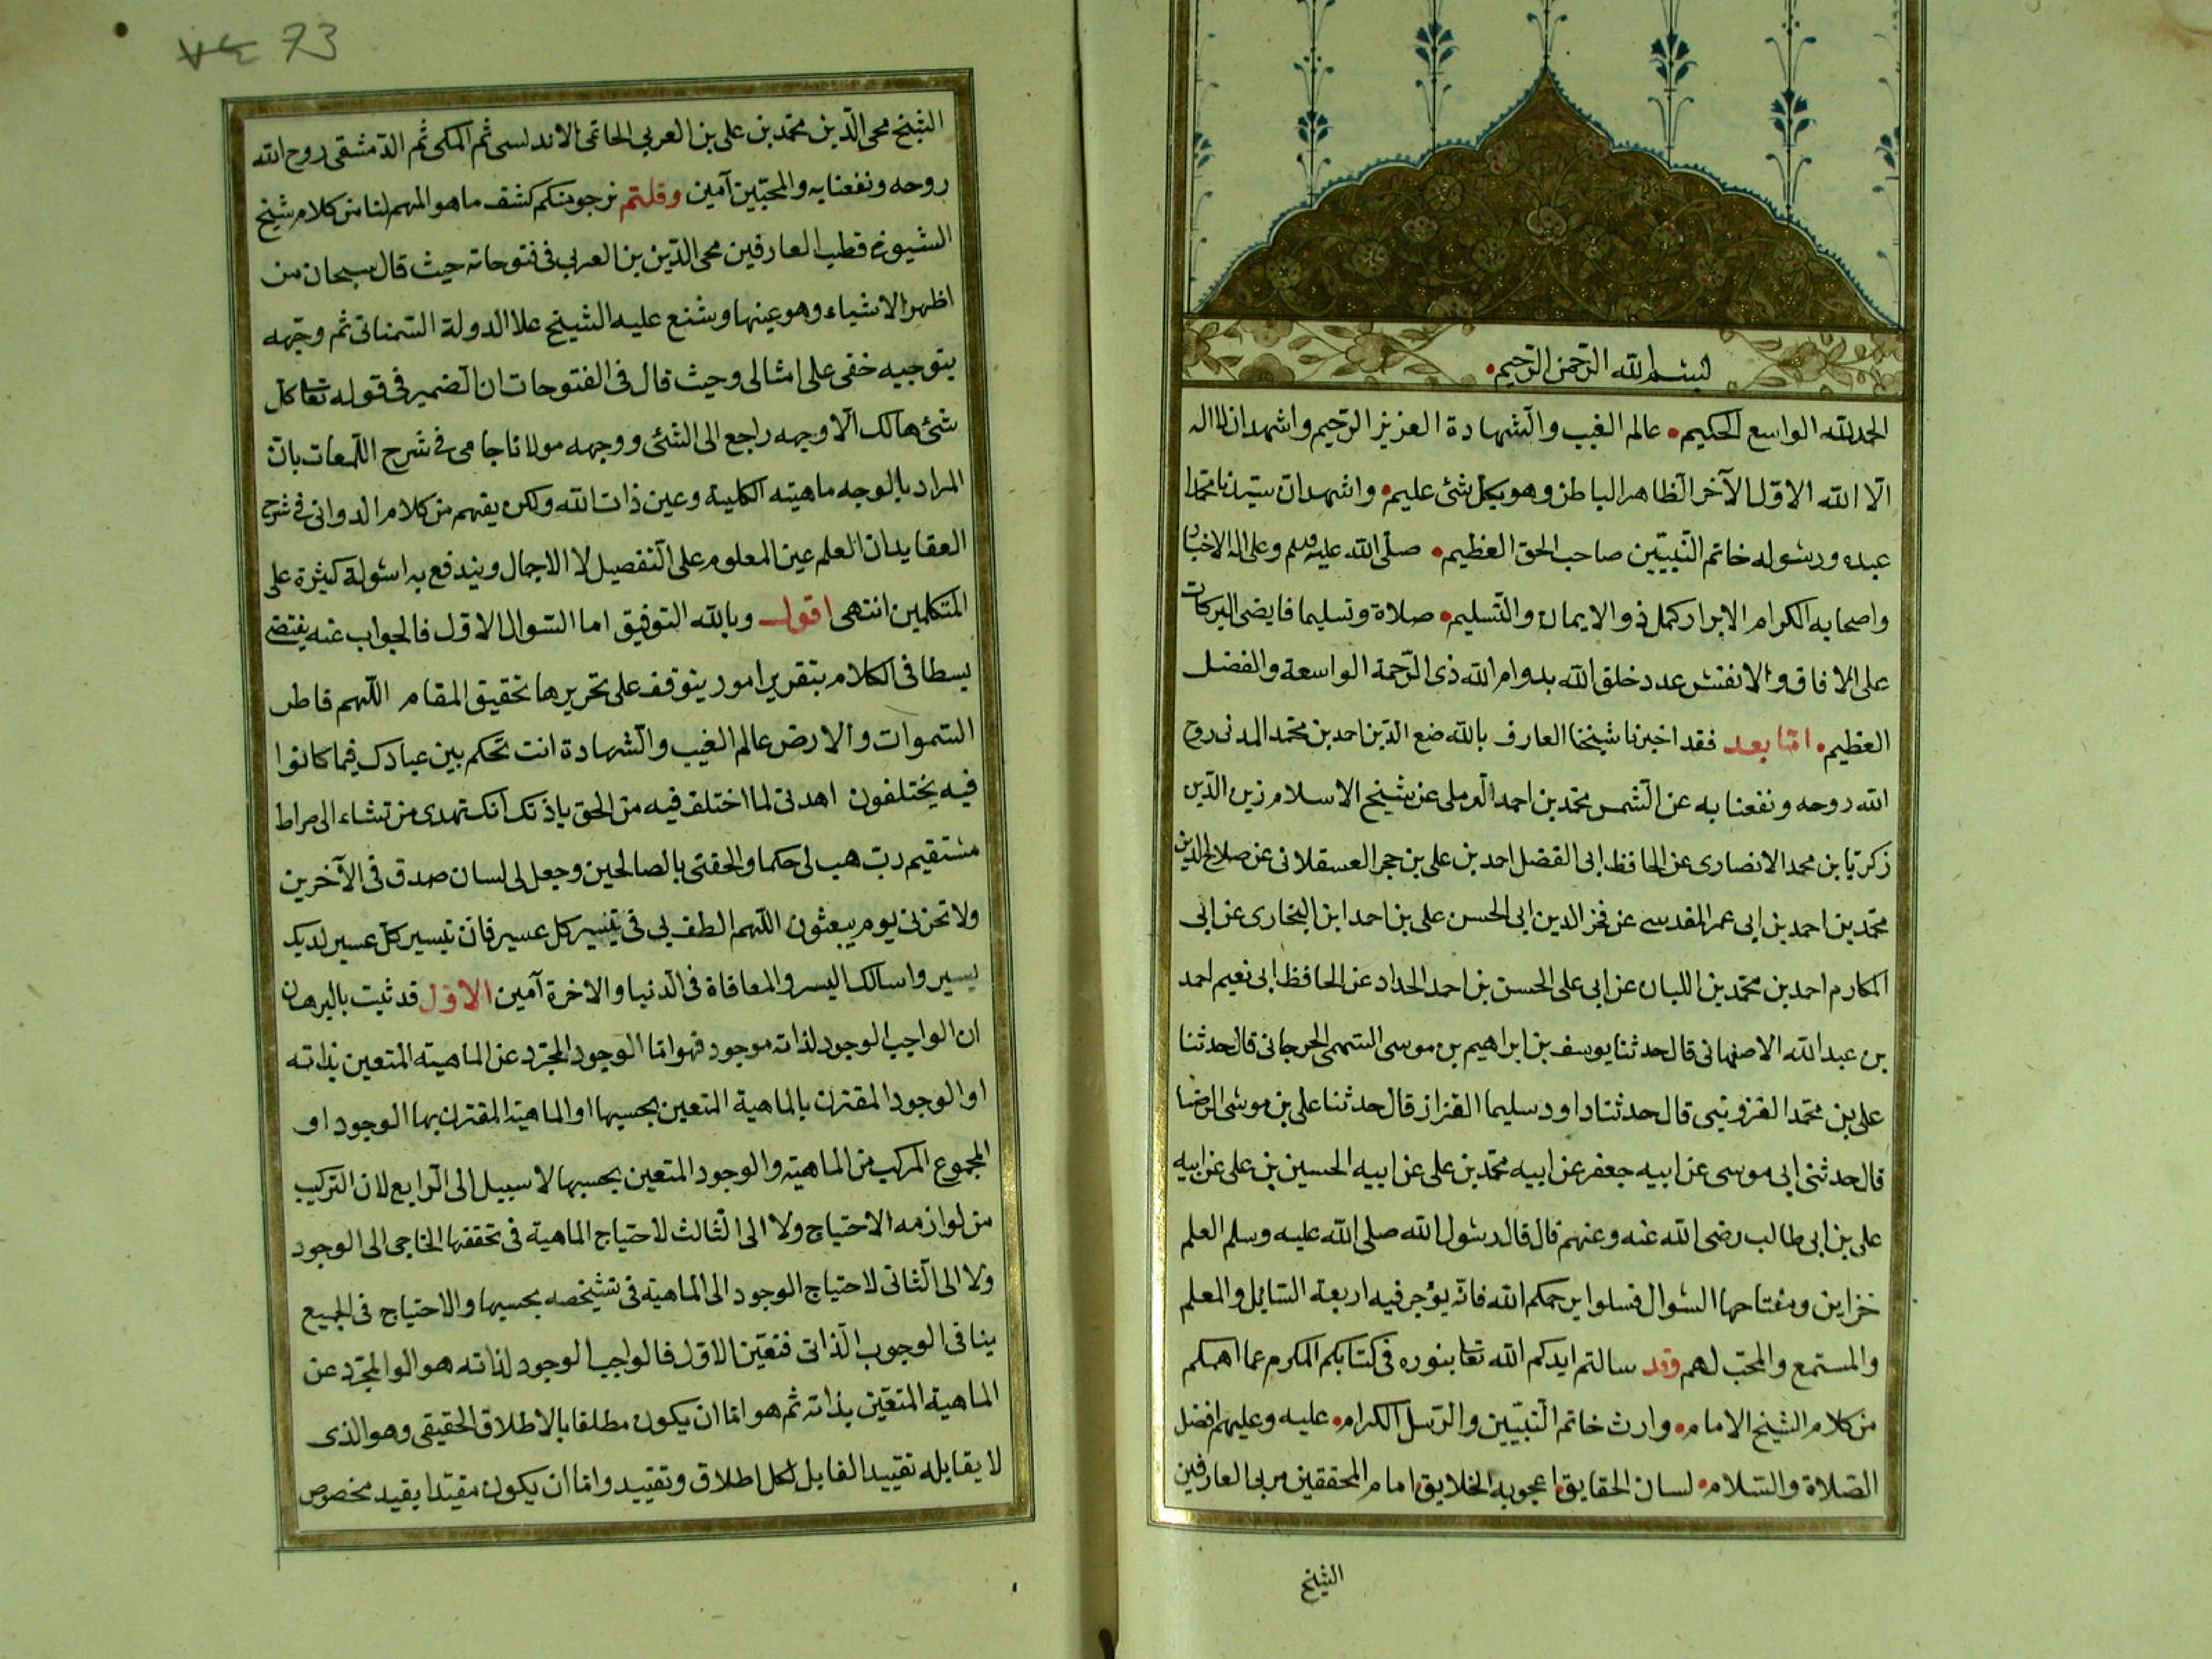 بسم الله الرحمن الرحيم
الحمد لله الواسع الحكيم عالم الغيب والشهادة العزيز الرحيم واشهد ان لا اله
الا الله الاول الآخر الظاهر الباطن وهو بكل شئ عليم واشهد ان سيدنا محمدا
عبده ورسوله خاتم النبيين صاحب الحق العظيم صلى الله عليه وسلم وعلى اله الاخيار
واصحابه الكرام الابرار كمل ذو الايمان والتسليم صلاة وتسليما فايضى البركات
على الافاق والانفس عدد خلق الله بدوام الله ذى الرحمة الواسعة والفضل
العظيم اما بعد فقد اخبرنا شيخنا العارف بالله صفع الدين احمد بن محمد المدنى روح
الله روحه ونفعنا به عن الشمس محمد بن احمد الرملى عن شيخ الاسلام زين الدين
زكريا بن محمد الانصارى عن الحافظ ابى الفضل احمد بن على بن حجر العسقلانى عن صلاح الدين
محمد بن احمد بن ابى عمر المقدسى عن فخر الدين ابى الحسن على بن احمد ابن البخارى عن ابى
المكارم احمد بن محمد بن اللبان عن ابى على الحسن بن احمد الحداد عن الحافظ ابى نعيم احمد
بن عبد الله الاصفهانى قال حدثنا يوسف بن ابراهيم بن موسى السهمى الجرجانى قال حدثنا
على بن محمد القزوينى قال حدثنا داود سليما القزاز قال حدثنا على بن موسى الرضا
قال حدثنى ابى موسى عن ابيه جعفر عن ابيه محمد بن على عن ابيه الحسين بن على عن ابيه
على بن ابى طالب رضى الله عنه وعنهم قال قال رسول الله صلى الله عليه وسلم العلم
خزاين ومفتاحها السوال فسلوا يرحمكم الله فانه يؤجر فيه اربعة السايل والمعلم
والمستمع والمحب لهم وقد سالتم ايدكم الله تعا بنوره فى كتابكم المكرم عما اهمكم
من كلام الشيخ الامام وارث خاتم النبيين والرسل الكرام عليه وعليهم افضل
الصلاة والسلام لسان الحقايق اعجوبة الخلايق امام المحققين مربى العارفين
الشيخ
73
الشيخ محى الدين محمد بن على بن العربى الحاتمى الاندلسى ثم المكى ثم الدمشقى روح الله
روحه ونفعنا به والمحبين آمين وقلتم نرجو منكم كشف ما هو المهم لنا من كلام شيخ
الشيوخ قطب العارفين محى الدين بن العربى فى فتوحاته حيث قال سبحان من
اظهر الاشياء وهو عينها وشنع عليه الشيخ علا الدولة السمنانى ثم وجهه
بتوجيه خفى على امثالى وحيث قال فى الفتوحات ان الضمير فى قوله تعا كل
شئ هالك الا وجهه راجع الى الشئ ووجهه مولانا جامى فى شرح اللمعات بان
المراد بالوجه ماهيته الكلية وعين ذات الله ولكن يفهم من كلام الدوانى فى شرح
العقايد ان العلم عين المعلوم على التفصيل لا الاجمال ويندفع به اسولة كثيرة على
المتكلمين انتهى اقول وبالله التوفيق اما السوال الاول فالجواب عنه يقتضى
بسطا فى الكلام بتقرير امور يتوقف على تحريرها تحقيق المقام اللهم فاطر
السموات والارض عالم الغيب والشهادة انت تحكم بين عبادك فيما كانوا
فيه يختلفون اهدنى لما اختلف فيه من الحق باذنك انك تهدى من تشاء الى صراط
مستقيم رب هب لى حكما والحقنى بالصالحين وجعل لى لسان صدق فى الآخرين
ولا تخزنى يوم يبعثون اللهم الطف بى فى تيسير كل عسير فان تيسير كل عسير لديك
يسير واسالك اليسر والمعافاة فى الدنيا والاخرة آمين الاول قد ثبت بالبرهان
ان الواجب الوجود لذاته موجود فهو اما الوجود المجرد عن الماهيته المتعين بذاته
او الوجود المقترن بالماهية المتعين بحسبها او الماهية المقترن بها الوجود او
المجموع المركب من الماهيته والوجود المتعين بحسبها لا سبيل الى الرابع لان التركيب
من لوازمه الاحتياج ولا الى الثالث لاحتياج الماهية فى تحققها الخاجى الى الوجود
ولا الى الثانى لاحتياج الوجود الى الماهية فى تشيخصه بحسبها والاحتياج فى الجميع
ينافى الوجوب الذاتى فتعين الاول فالواجب الوجود لذاته هو الوا المجرد عن
الماهية المتعين بذاته ثم هو اما ان يكون مطلقا بالاطلاق الحقيقى وهو الذى
لا يقابله تقييد القابل لكل اطلاق وتقييد واما ان يكون مقيدا بقيد مخصوص